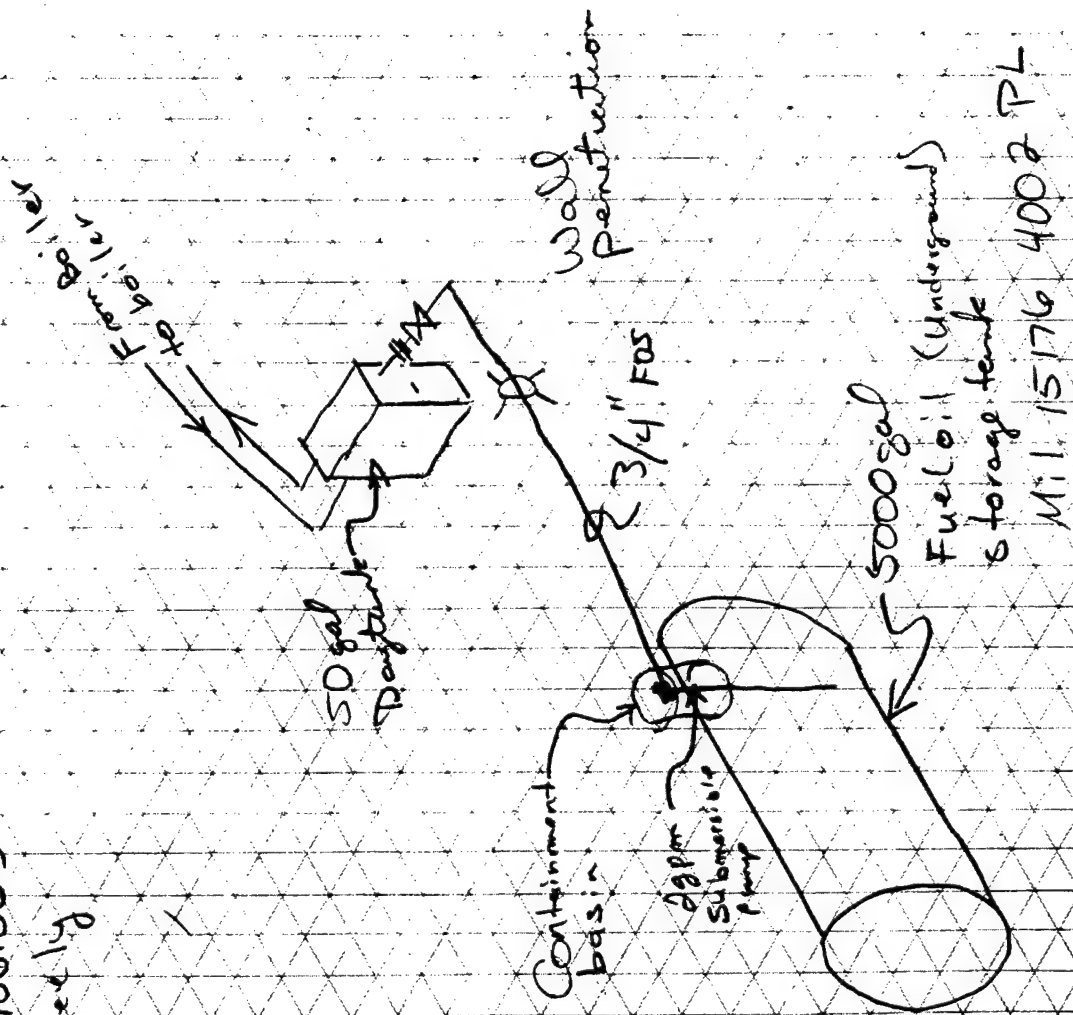 From Boiler
to boiler
50 gal
Daytank
Wall
Penetration
3/4" FOS
Containment
basin
2gpm
Submersible
Pump
5000gal
Fuel oil (Underground)
Storage tank
Mil 15176 4002 PL